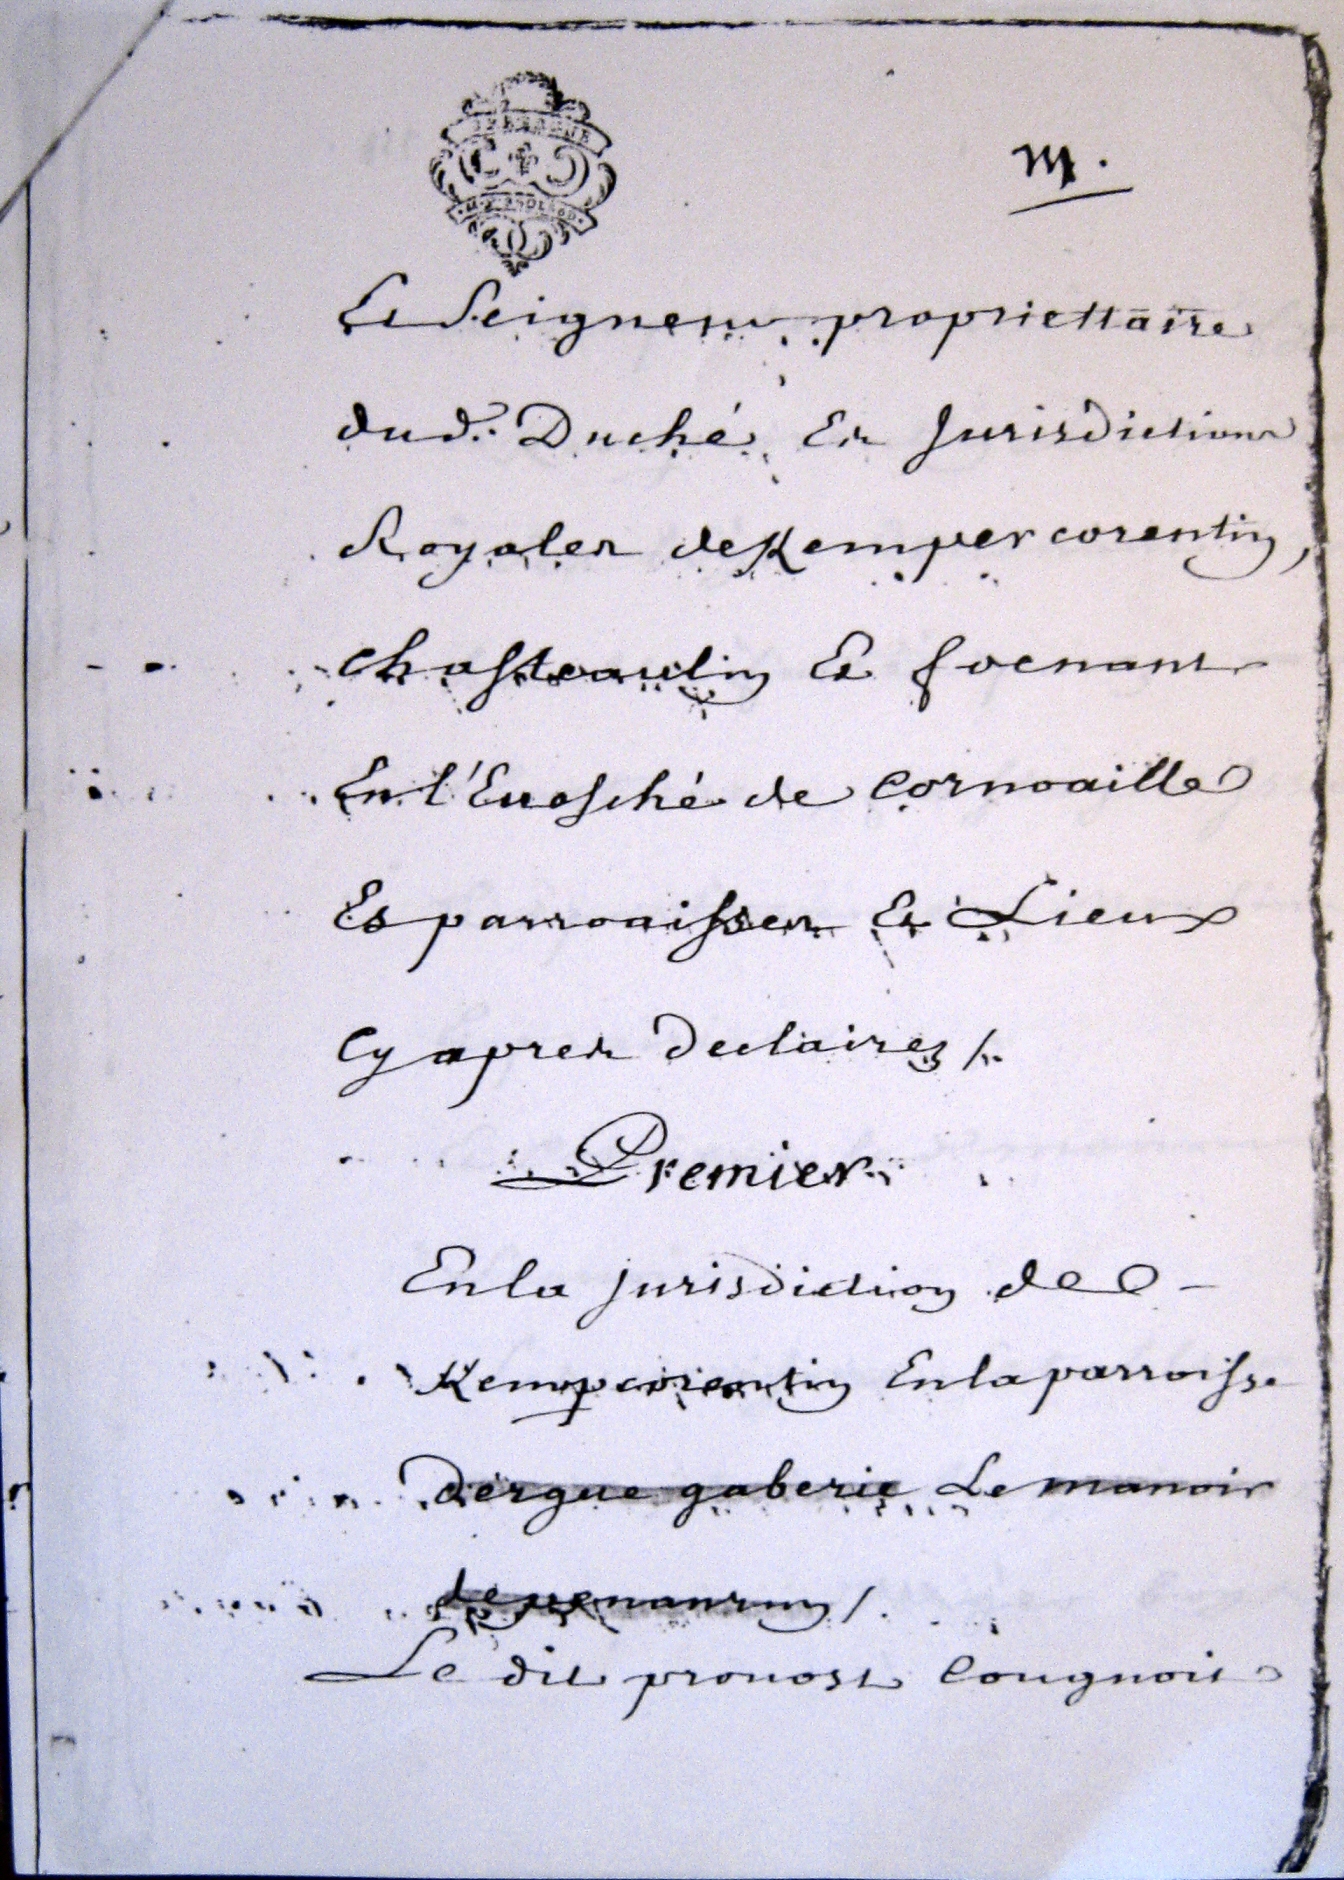 BRETAGNE
m.
Et Seigneur propriettaire
dud. Duché Es Jurisdictions
Royales de Kempercorentin,
chasteaulin Et foenant
En l'Euesché de Cornoaille
Es parroaisses Et Lieux
Cy apres declairez /.
Premier
En la jurisdiction de -
Kempcorentin En la parroisse
dergue gaberic Le manoir
de penanrun /.
Le dit prouost Cougnoist